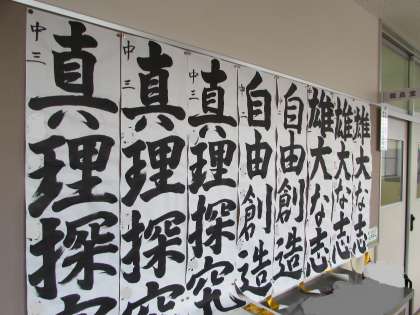 雄大な志
雄大な志
雄大な志
自由創造
自由創造
中二
真理探究
中三
真理探究
中三
真理探究
中三